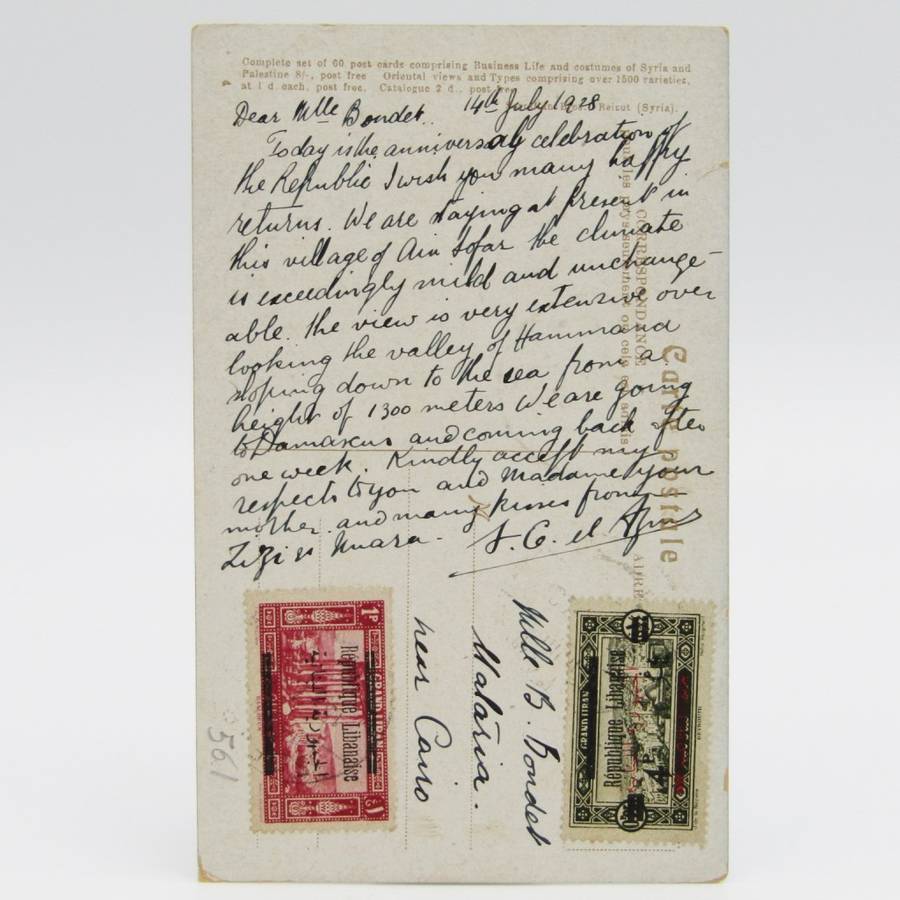 Complete set of 60 post cards comprising Business Life and costumes of Syria and
Palestine 8/-, post free Oriental views and Types comprising over 1500 varieties,
at 1 d. each, post free. Catalogue 2 d., post free
Beirut (Syria).
Dear Mlle Bondet. 14th July 1928
Today is the anniversary celebration of
the Republic I wish you many happy
returns. We are staying at present in
this village of Ain Sofar the climate
is exceedingly mild and unchange-
able. the view is very extensive over
looking the valley of Hammana
sloping down to the sea from a
height of 1300 meters We are going
to Damascus and coming back after
one week. Kindly accept my
respects to you and Madame your
mother and many kisses from
Zizi
CORRESPONDANCE
Carte postale
1P
République Libanaise
GRAND LIBAN
الجمهورية اللبنانية
Mlle B. Bondet
Mataria.
near Cairo
GRAND LIBAN
République Libanaise
4 P
561